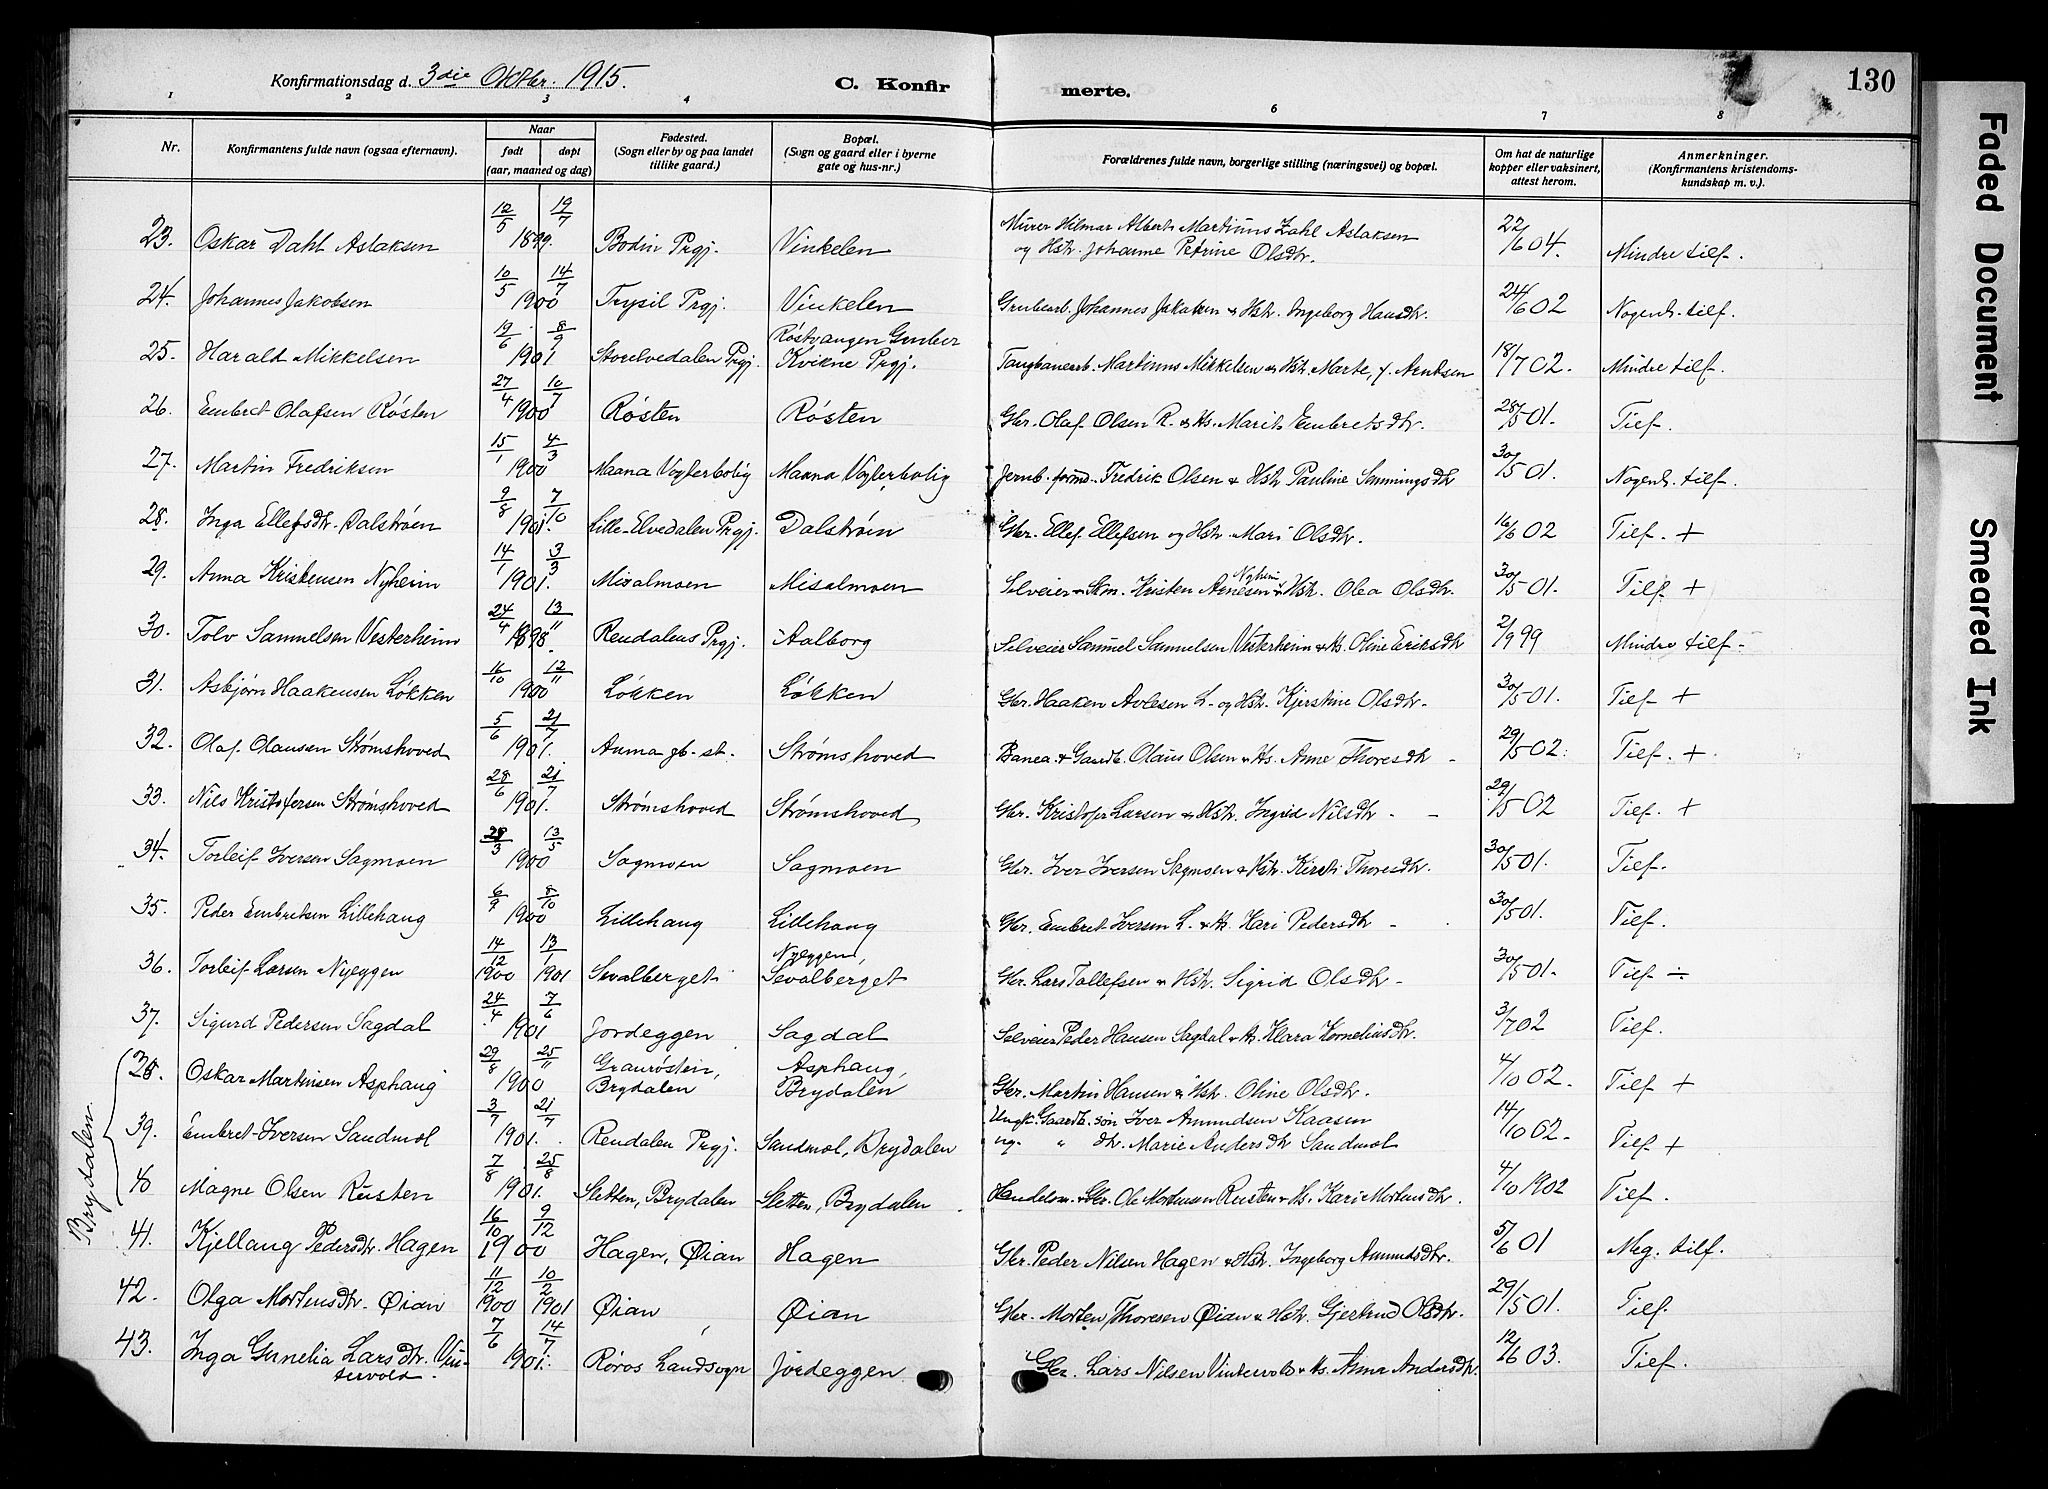 Konfirmationsdag d. 3die Oktbr. 1915.
C. Konfirmerte.
130
1 2 3 4 5 6 7 8
Nr.
Konfirmantens fulde navn (ogsaa efternavn).
Naar
født døpt
(aar, maaned og dag)
Fødested.
(Sogn eller by og paa landet
tillike gaard.)
Bopæl.
(Sogn og gaard eller i byerne
gate og hus-nr.)
Forældrenes fulde navn, borgerlige stilling (næringsvei) og bopæl.
Om hat de naturlige
kopper eller vaksinert,
attest herom.
Anmerkninger.
(Konfirmantens kristendoms-
kundskap m. v.).
23. Oskar Dahl Aslaksen 12/5 19/7 1899. Bodin Prgj. Vinkelen Murer Hilmar Albert Martinus Zahl Aslaksen
og Hstr. Johanne Petrine Olsdtr. 22/6 04. Mindre tilf.
24. Johannes Jakobsen 10/5 14/7 1900 Trysil Prgj. Vinkelen Grubearb. Johannes Jakobsen & Hstr. Ingeborg Hansdtr. 24/6 02 Nogenl. tilf.
25. Harald Mikkelsen 19/6 8/9 1901 Storelvedalen Prgj. Røstvangen Gruber
Kvikne Prgj. Taugbanearb. Martinus Mikkelsen & Hstr. Marte, f. Arntsen 18/7 02. Mindre tilf.
26. Embret Olafsen Røsten 27/4 10/7 1900 Røsten Røsten Gbr. Olaf Olsen R. & Hs. Marit Embretsdtr. 28/5 01. Tilf.
27. Martin Fredriksen 15/1 4/3 1900 Maana Vogterbolig Maana Vogterbolig Jernb. formd. Fredrik Olsen & Hstr Pauline Simmingsdtr 30/5 01. Nogenl. tilf.
28. Inga Ellefsdtr. Dalstrøen 9/8 7/10 1901. Lille-Elvedalen Prgj. Dalstrøen Gbr. Ellef Ellefsen og Hstr. Mari Olsdtr. 16/6 02 Tilf. +
29. Anna Kristensen Nyheim 14/1 3/3 1901. Misalmoen Misalmoen Selveier & Skm. Kristen Arnesen Nyheim & Hstr. Olea Olsdtr. 30/5 01. Tilf. +
30. Tolv Samuelsen Vesterheim 24/4 13/11 1898. Rendalens Prgj. Aalborg Selveier Samuel Samuelsen Vesterheim & Hs. Oline Eriksdtr 2/9 99 Mindre tilf.
31. Asbjørn Haakensen Løkken 16/10 12/11 1900 Løkken Løkken Gbr. Haaken Avlesen L. og Hstr. Kjerstine Olsdtr. 30/5 01. Tilf +
32. Olaf Olausen Strømshoved 5/6 21/7 1901. Auma jb. st. Strømshoved Banea. & Gaardb. Olaus Olsen & Hs. Anne Thoresdtr 29/5 02. Tilf. +
33. Nils Kristofersen Strømshoved 28/6 21/7 1901. Strømshoved Strømshoved Gbr. Kristofer Larsen & Hstr. Ingrid Nilsdtr. 29/5 02 Tilf. +
34. Torleif Iversen Sagmoen 28/3 13/5 1900 Sagmoen Sagmoen Gbr. Iver Iversen Sagmoen & Hstr. Kirsti Thoresdtr. 30/5 01. Tilf.
35. Peder Embretsen Lillehaug 6/9 8/10 1900 Lillehaug Lillehaug Gbr. Embret Iversen L. & Hs. Kari Pedersdtr 30/5 01. Tilf.
36. Torleif Larsen Nyeggen 14/12 1900 13/1 1901 Sevalberget Nyeggen,
Sevalberget Gbr. Lars Tollefsen & Hstr. Sigrid Olsdtr 30/5 01. Tilf ÷
37. Sigurd Pedersen Sagdal 24/4 7/6 1901 Jordeggen Sagdal Selveier Peder Hansen Sagdal & Hs. Klara Korneliusdtr. 3/7 02 Tilf.
Brydalen.
38. Oskar Martinsen Asphaug 29/8 25/11 1900 Graurøsten,
Brydalen Asphaug,
Brydalen Gbr. Martin Hansen & Hstr. Oline Olsdtr. 4/10 02. Tilf +
39. Embret Iversen Sandmol 3/7 21/7 1901. Rendalen Prgj. Sandmol, Brydalen Ungk. Gaardb. søn Iver Amundsen Kaasen
ug. " dtr. Marie Andersdtr Sandmol 14/10 02. Tilf +
40 Magne Olsen Rusten 7/8 25/8 1901. Sletten, Brydalen Sletten, Brydalen Handelsm. & Gbr. Ole Mortensen Rusten & Hs. Kari Mortensdtr. 4/10 1902 Tilf.
41. Kjellaug Pedersdtr. Hagen 16/10 9/12 1900 Hagen, Øian Hagen Gbr. Peder Nilsen Hagen & Hstr. Ingeborg Amundsdtr. 5/6 01 Meg. tilf.
42. Olga Mortensdtr. Øian 11/12 1900 10/2 1901 Øian Øian Gbr. Morten Thoresen Øian & Hstr. Gjertrud Olsdtr. 29/5 01. Tilf
43. Inga Gunelia Larsdtr. Vin-
tervold. 7/6 14/7 1901. Røros Landsogn Jordeggen Gbr. Lars Nilsen Vintervold & Hs. Anna Andersdtr. 12/6 03. Tilf.
Faded Document
Smeared Ink